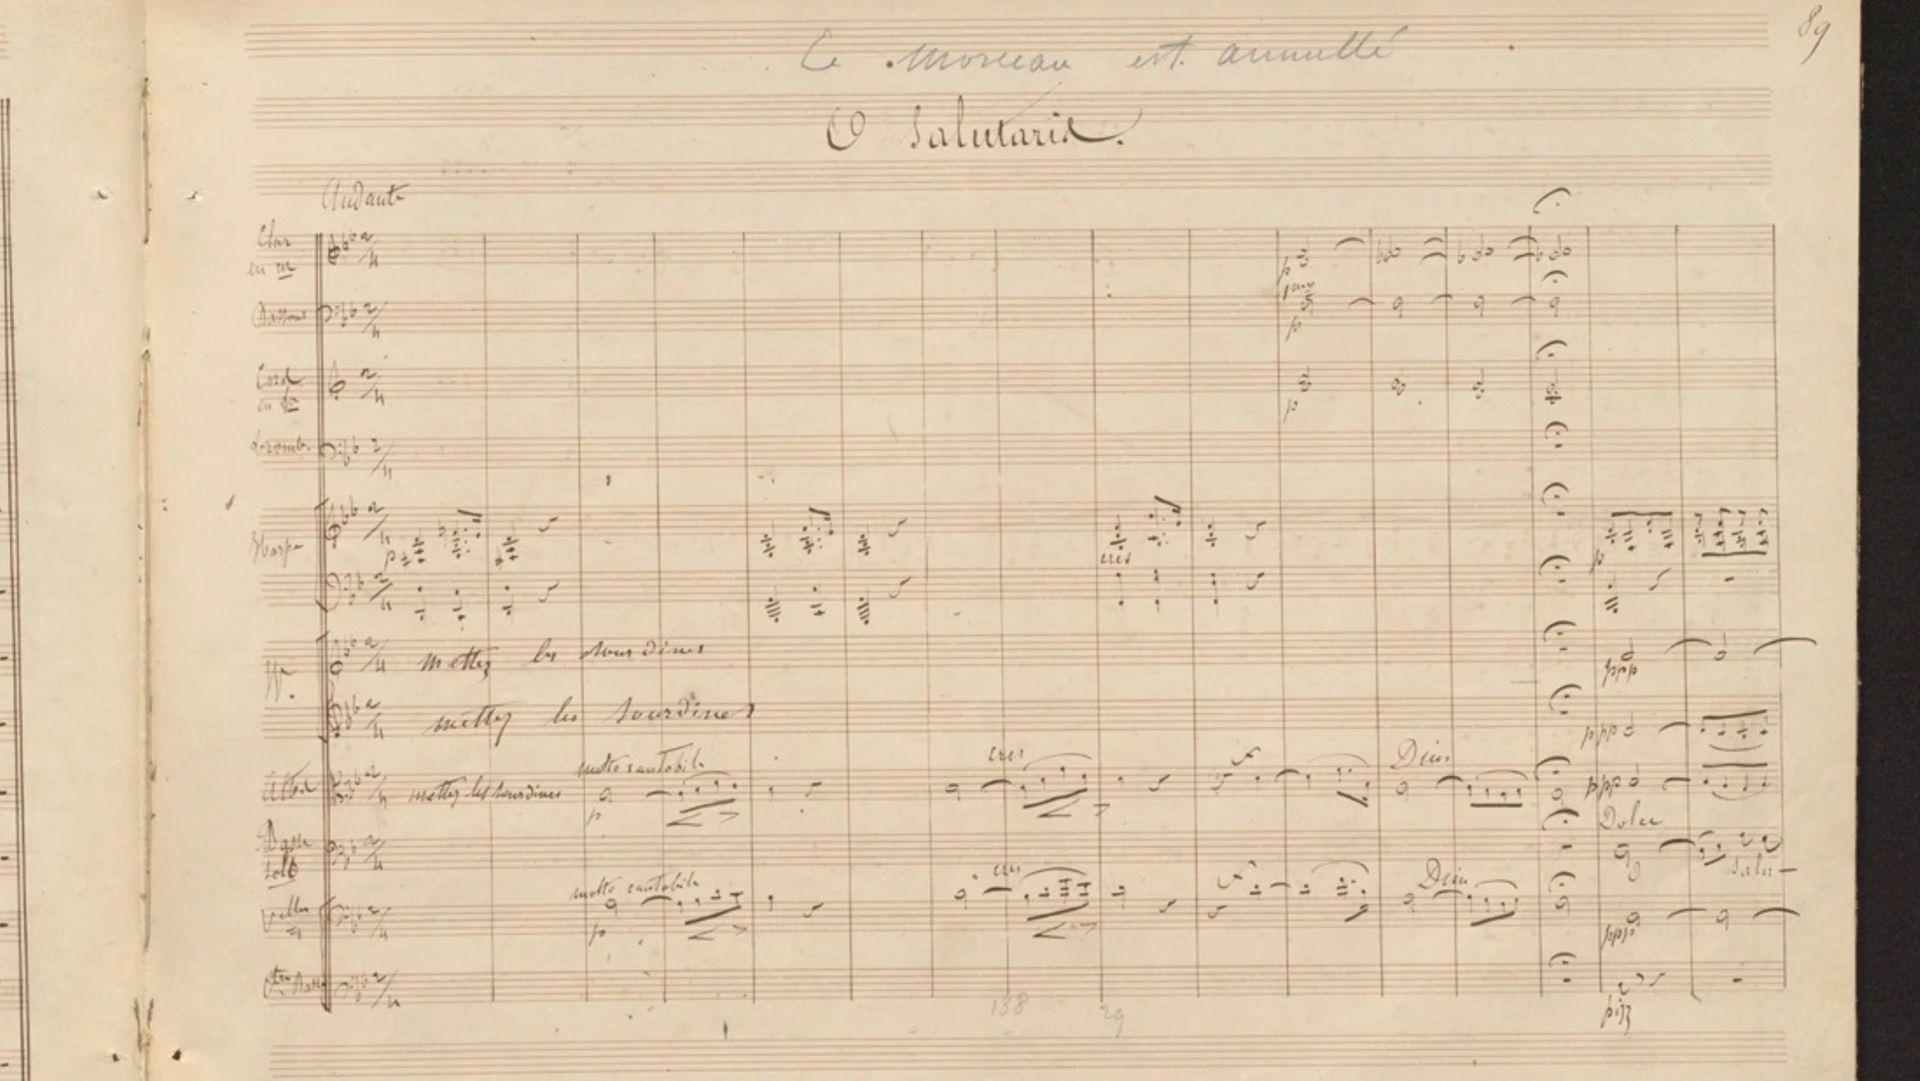 89
Ce morceau est annullé
O Salutaris.
Andante
en ut
Bassons
p
p
Cors
p
Harpe
p
cres
p
mettez les sourdines
ppp
mettez les sourdines
ppp
molto cantabile
cres
F
Dim.
Altos
mettez les sourdines
p
ppp
Dolce
Basse
Solo
Salu-
molto cantabile
cres
F
Dim
p
ppp
138
29
pizz